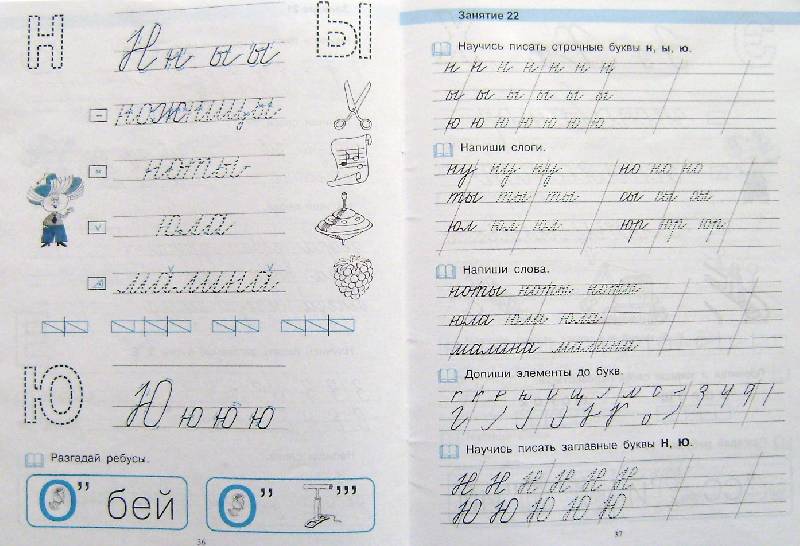 Н Ы
Н н ы ы
ножницы
ноты
юла
малина
Ю
Ю ю ю ю
Разгадай ребусы.
О” бей О” ’’’
36
Занятие 22
Научись писать строчные буквы н, ы, ю.
н н н н н н н
ы ы ы ы ы ы
ю ю ю ю ю ю ю
Напиши слоги.
ну ну ну но но но
ты ты ты сы сы сы
юл юл юл юр юр юр
Напиши слова.
ноты ноты ноты
юла юла юла
малина малина
Допиши элементы до букв.
Научись писать заглавные буквы Н, Ю.
Н Н Н Н Н Н
Ю Ю Ю Ю Ю
37